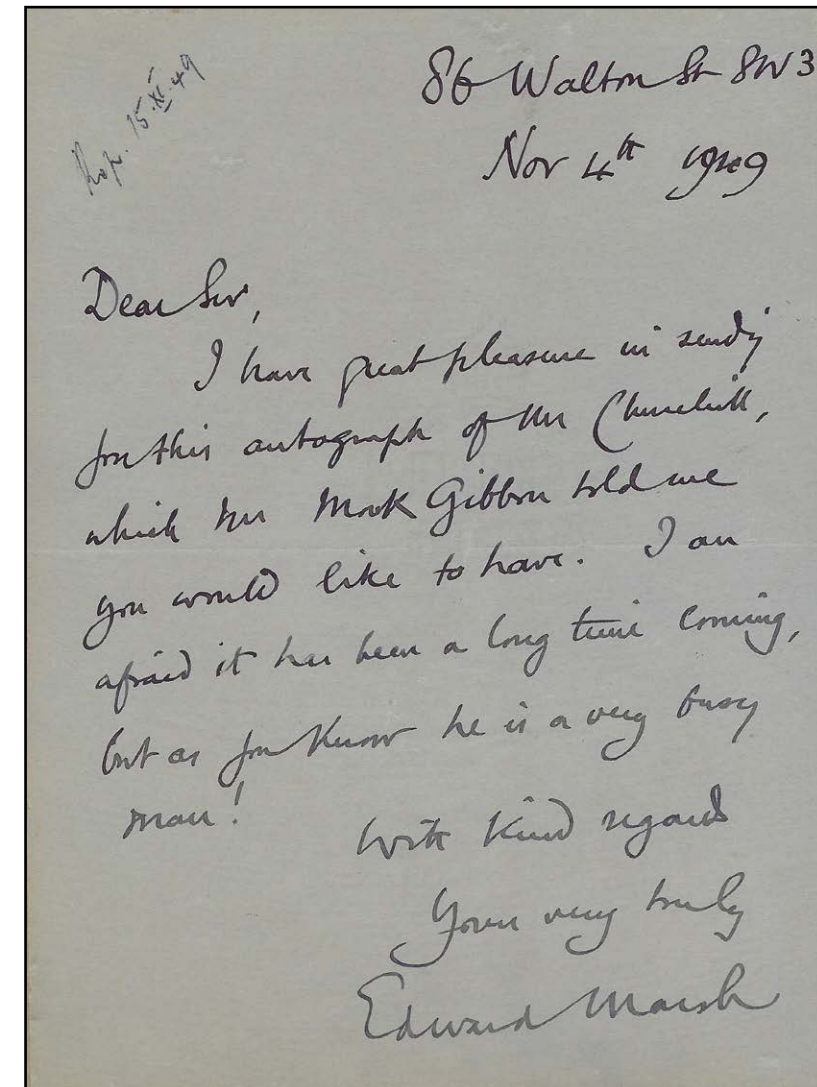 Rép. 15.XI.49
86 Walton St SW3
Nov 4th 1949
Dear Sir,
I have great pleasure in sending
you this autograph of Mr Churchill,
which Mr Mark Gibbon told me
you would like to have. I am
afraid it has been a long time coming,
but as you know he is a very busy
man!
With kind regards
Yours very truly
Edward Marsh